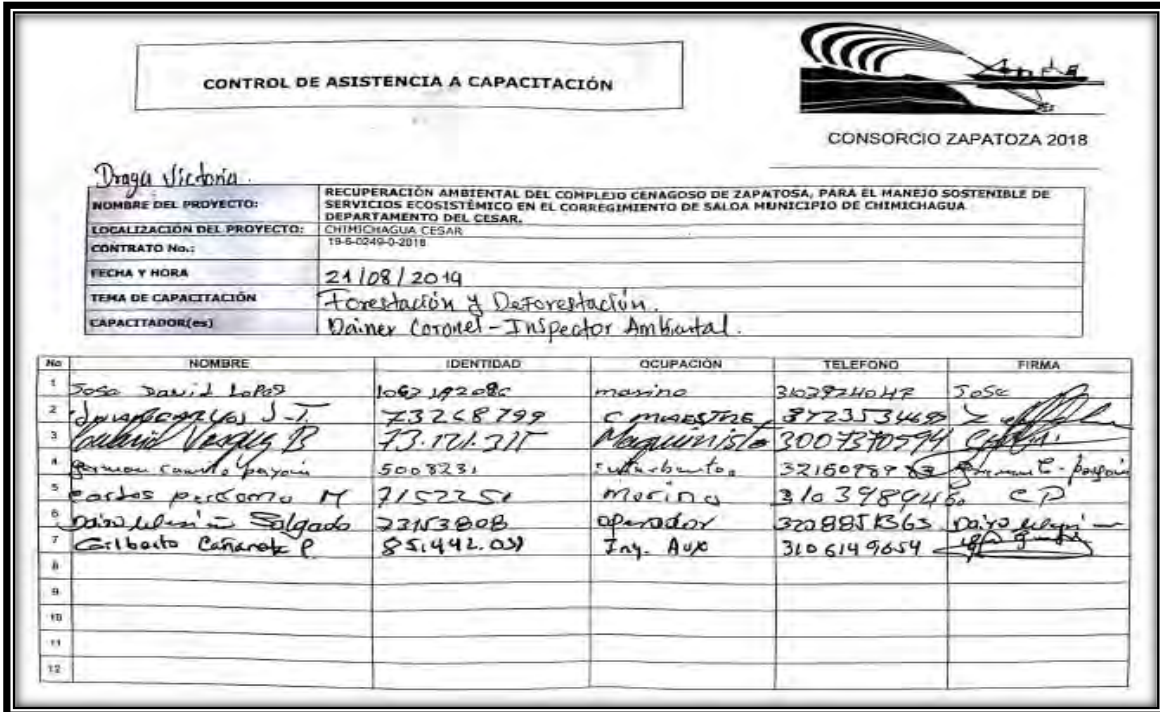 CONTROL DE ASISTENCIA A CAPACITACIÓN
CONSORCIO ZAPATOZA 2018
Draga Victoria.
NOMBRE DEL PROYECTO: RECUPERACIÓN AMBIENTAL DEL COMPLEJO CENAGOSO DE ZAPATOSA, PARA EL MANEJO SOSTENIBLE DE
SERVICIOS ECOSISTÉMICO EN EL CORREGIMIENTO DE SALOA MUNICIPIO DE CHIMICHAGUA
DEPARTAMENTO DEL CESAR.
LOCALIZACIÓN DEL PROYECTO: CHIMICHAGUA CESAR
CONTRATO No.: 19-6-0249-0-2018
FECHA Y HORA 21/08/2019
TEMA DE CAPACITACIÓN Forestación y Deforestación.
CAPACITADOR(es) Dainer Coronel - Inspector Ambiental.
No NOMBRE IDENTIDAD OCUPACIÓN TELEFONO FIRMA
1 Jose David Lopez marino Jose
2 73268799
3 Gabriel Vasquez B 73.121.315 Maquinista 3007370594
4 5008231
5 Carlos perdomo M 7152251 marino CP
6 Salgado operador
7 Gilberto Cañarete P. Ing. Aux 3106149654
8
9
10
11
12